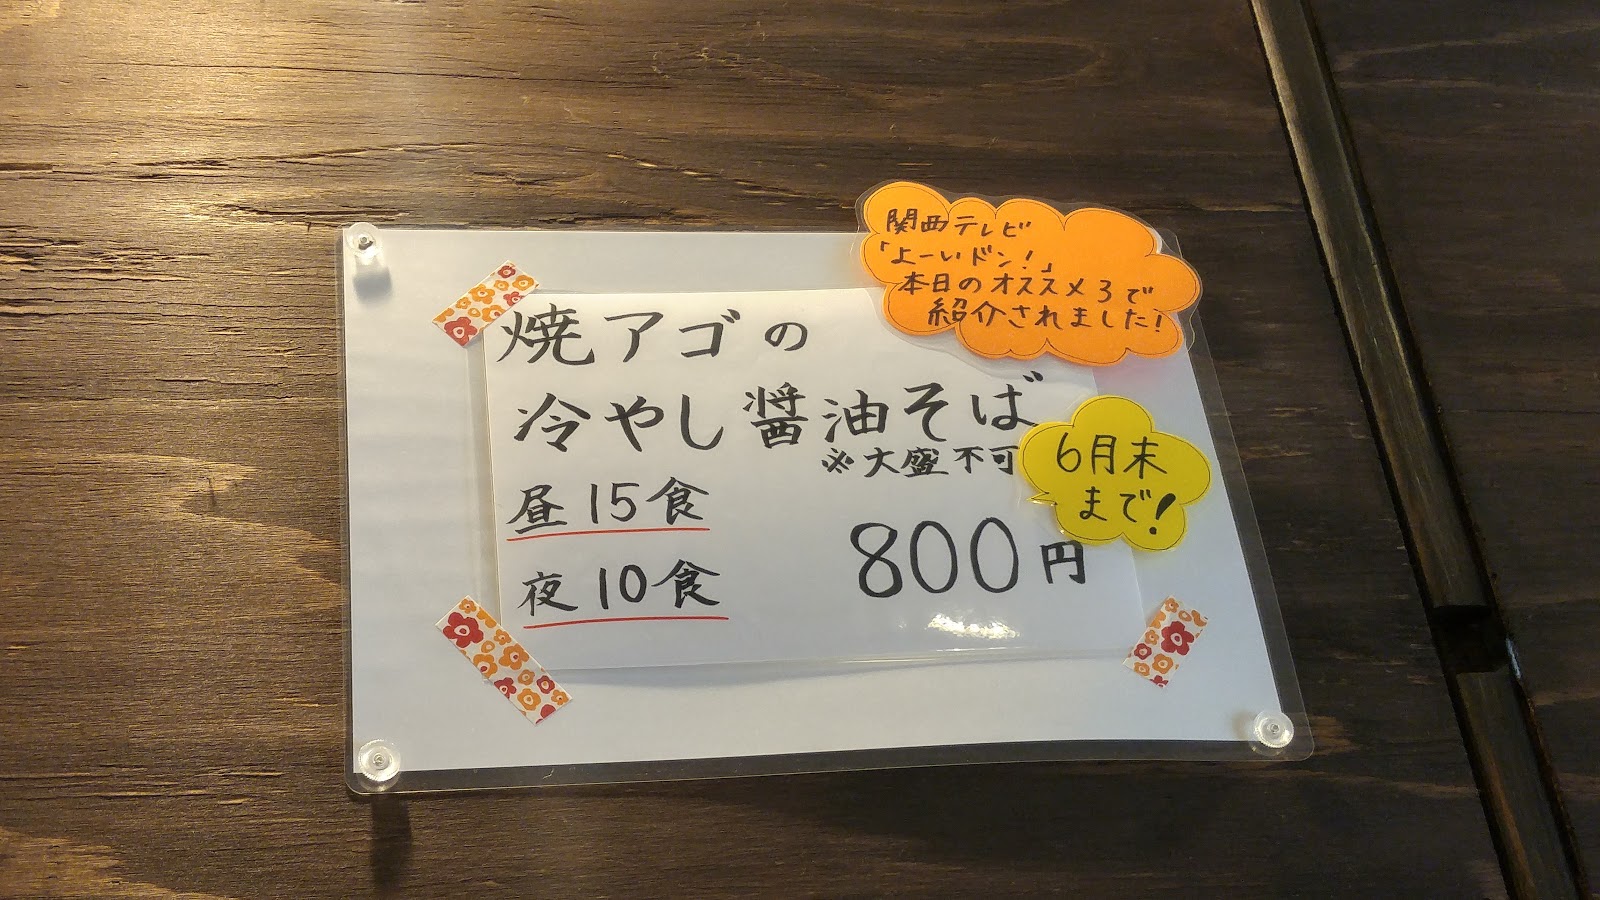 関西テレビ
「よーいドン!」
本日のオススメ3で
紹介されました!
焼アゴの
冷やし醤油そば
※大盛不可
6月末
まで!
昼15食
夜10食
800円